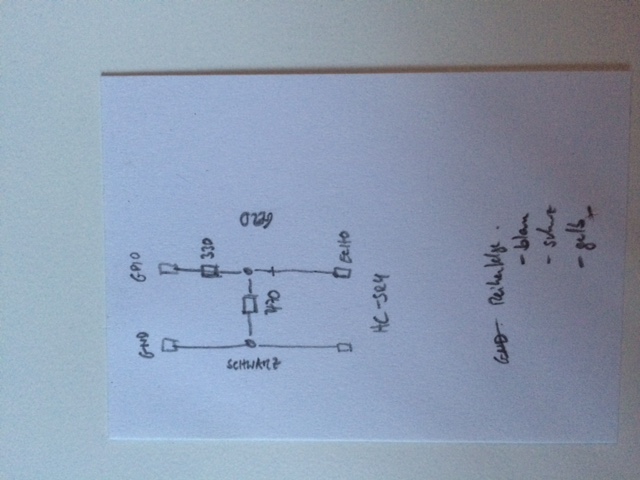 GND GPIO
330
SCHWARZ
470
ECHO
HC-SR4
GND Reihenfolge.
- blau
- schwz
- gelb